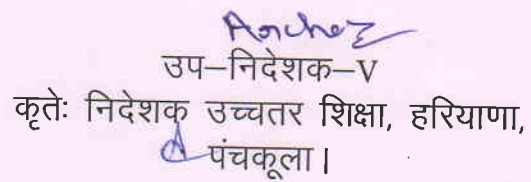 उप–निदेशक–V
कृतेः निदेशक उच्चतर शिक्षा, हरियाणा,
पंचकूला।